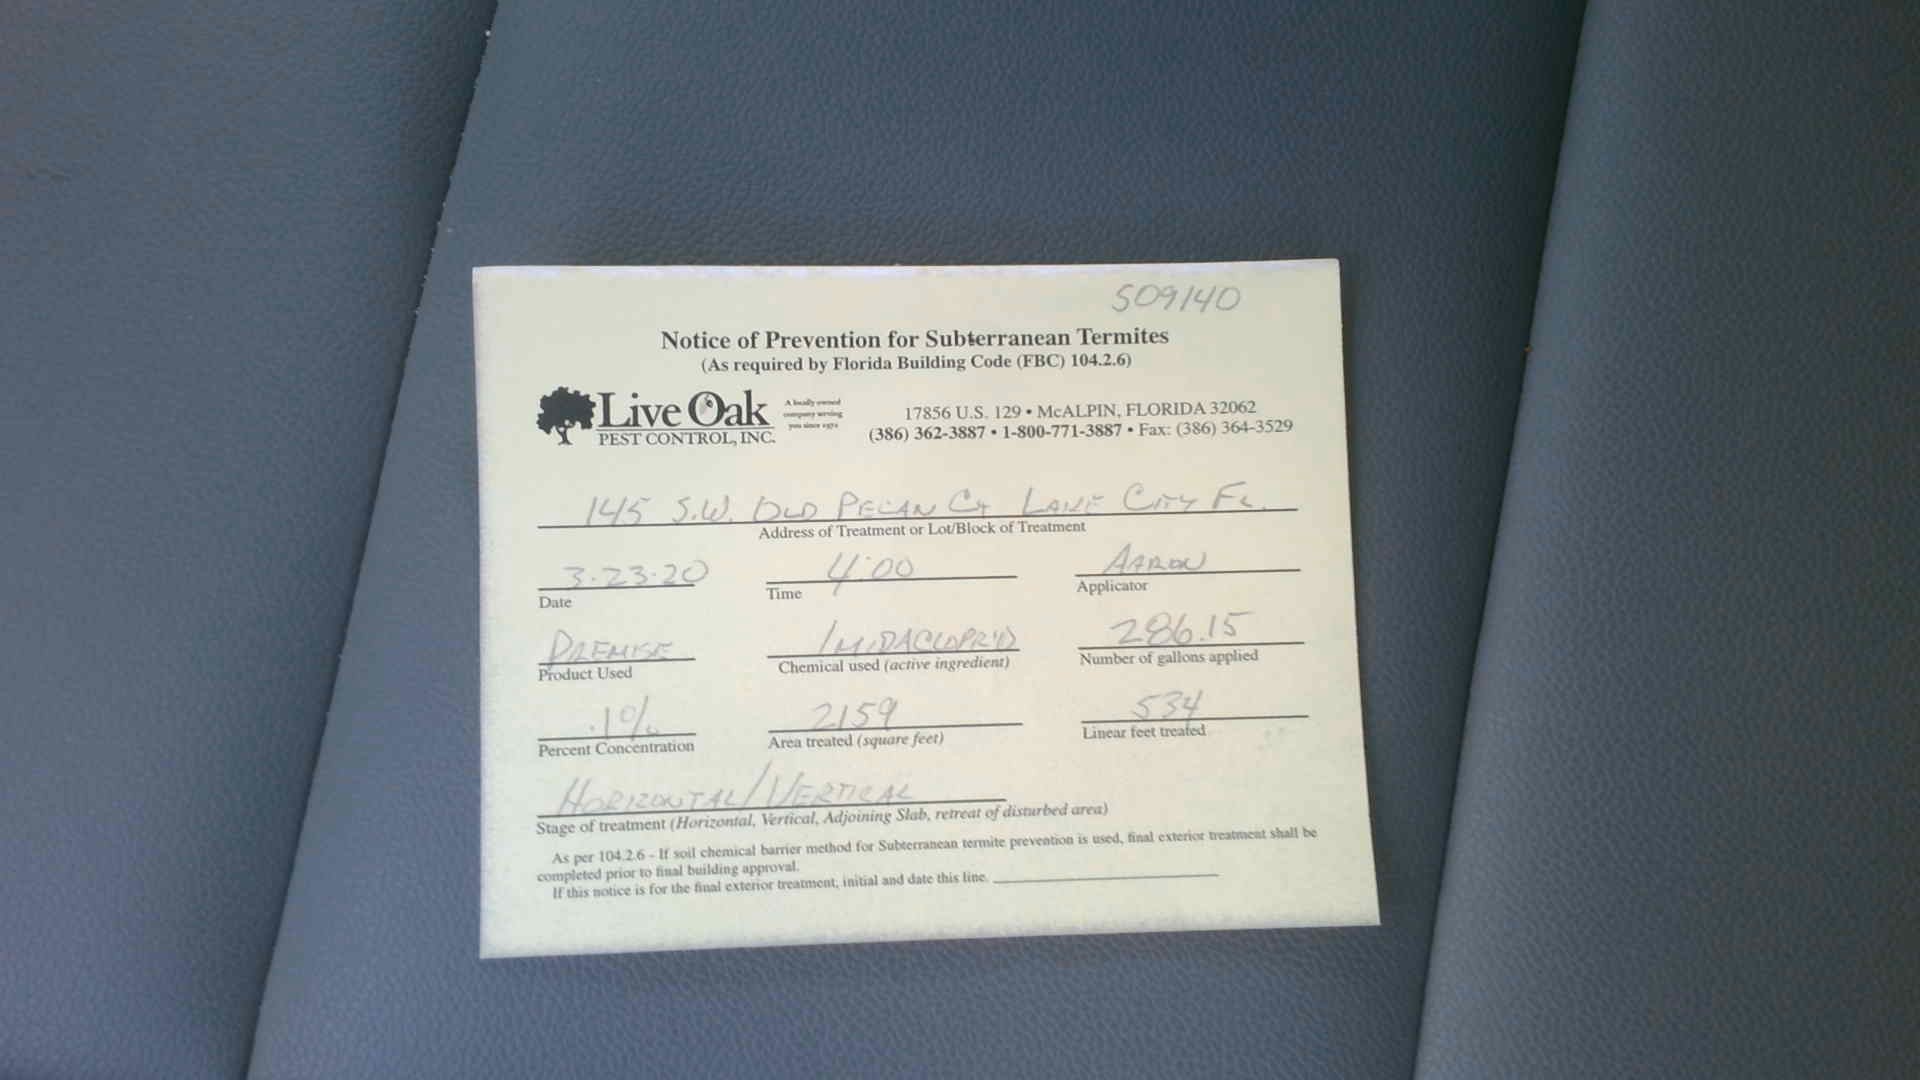 509140
Notice of Prevention for Subterranean Termites
(As required by Florida Building Code (FBC) 104.2.6)
Live Oak
PEST CONTROL, INC.
A locally owned
company serving
you since 1972
17856 U.S. 129 • McALPIN, FLORIDA 32062
(386) 362-3887 • 1-800-771-3887 • Fax: (386) 364-3529
145 S.W. OLD PECAN CT LAKE CITY FL.
Address of Treatment or Lot/Block of Treatment
3-23-20 4:00 AARON
Date Time Applicator
PREMISE IMIDACLOPRID 286.15
Product Used Chemical used (active ingredient) Number of gallons applied
.1% 2159 534
Percent Concentration Area treated (square feet) Linear feet treated
HORIZONTAL/VERTICAL
Stage of treatment (Horizontal, Vertical, Adjoining Slab, retreat of disturbed area)
As per 104.2.6 - If soil chemical barrier method for Subterranean termite prevention is used, final exterior treatment shall be
completed prior to final building approval.
If this notice is for the final exterior treatment, initial and date this line.